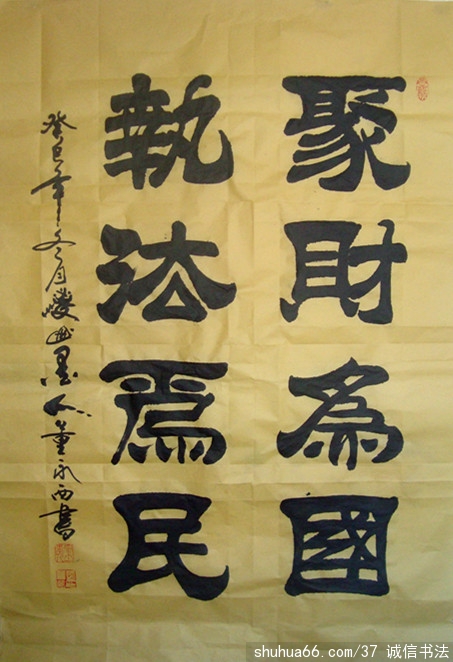 聚財為國
執法爲民
癸巳年冬月山墨人董永西書
shuhua66.com/37 诚信书法